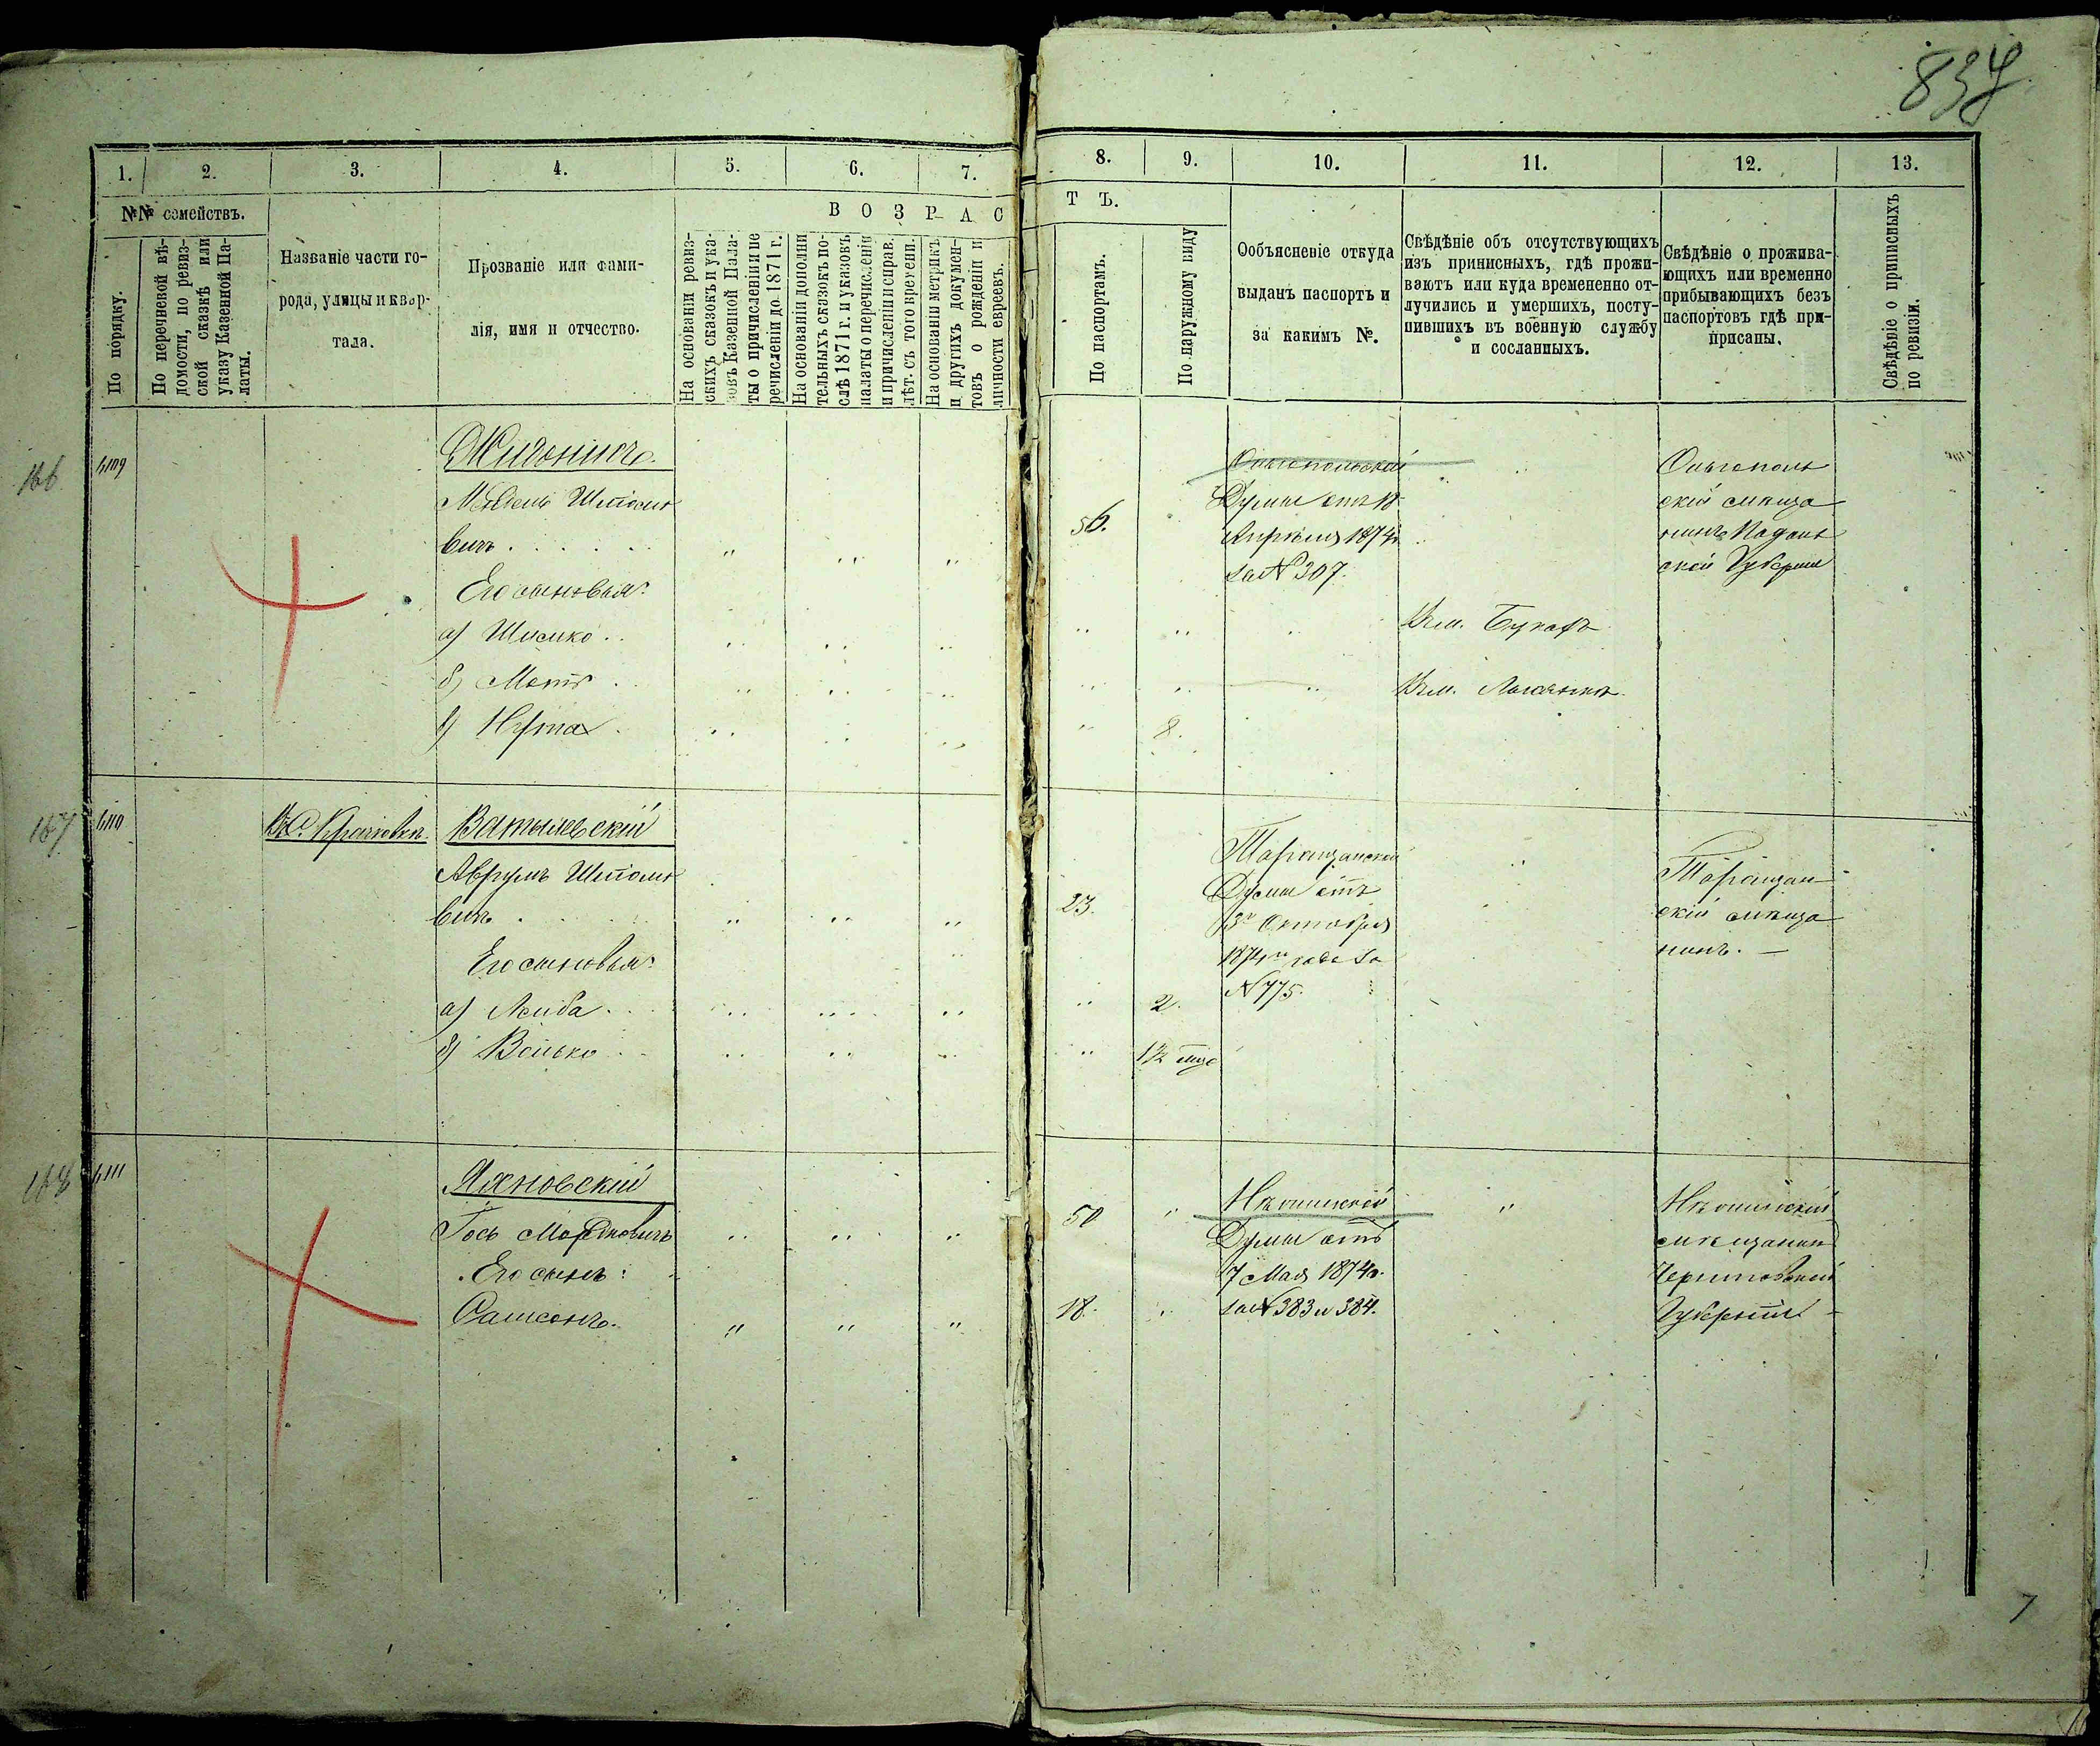 837
1.
2.
3.
4.
5.
6.
7.
8.
9.
10.
11.
12.
13.
№№ семействъ.
По порядку.
По перечневой вѣ-
домости, по ревиз-
ской сказкѣ или
указу Казенной Па-
латы.
Названіе части го-
рода, улицы и квар-
тала.
Прозваніе или фами-
лія, имя и отчество.
В О З Р А С
Т Ъ.
На основаніи ревиз-
скихъ сказокъ и ука-
зовъ Казенной Пала-
ты о причисленіи и пе
речисленіи до 1871 г.
На основаніи дополни
тельныхъ сказокъ по-
слѣ 1871 г. и указовъ
палаты о перечисленіи
и причисленіи и справ.
лѣт. съ того времени.
На основаніи метрикъ
и другихъ докумен-
товъ о рожденіи и
личности евреевъ.
По паспортамъ.
По наружному виду
Ообъясненіе откуда
выданъ паспортъ и
за какимъ №.
Свѣдѣніе объ отсутствующихъ
изъ приписныхъ, гдѣ прожи-
ваютъ или куда времененно от-
лучились и умершихъ, посту-
пившихъ въ военную службу
и сосланныхъ.
Свѣдѣніе о прожива-
ющихъ или временно
прибывающихъ безъ
паспортовъ гдѣ при-
присаны.
Свѣдѣніе о приписныхъ
по ревизіи.
166
Шполи
вичъ
56.
Думы отъ 18
Апрѣля 1874 г.
за № 307.
Ольгополь
скій мѣща
нинъ Подоль
ской Губерніи
Его сыновья:
а) Шмико
б)
в) Нута
8.
167
Ватылевскій
Аврумъ Шполи
вичъ
23.
Таращанской
Думы отъ
3го Октября
1874го года за
№ 775.
Таращан
скій мѣща
нинъ.
Его сыновья:
а) Лейба
2.
б) Волько
1½
168
4111
Яхновскій
Гось
50
Нѣжинской
Думы отъ
7 Мая 1874 г.
за № 383 и 384.
Нѣжинскій
мѣщанин
Черниговской
Губерніи
Его сынъ:
Самсонъ.
18.
7